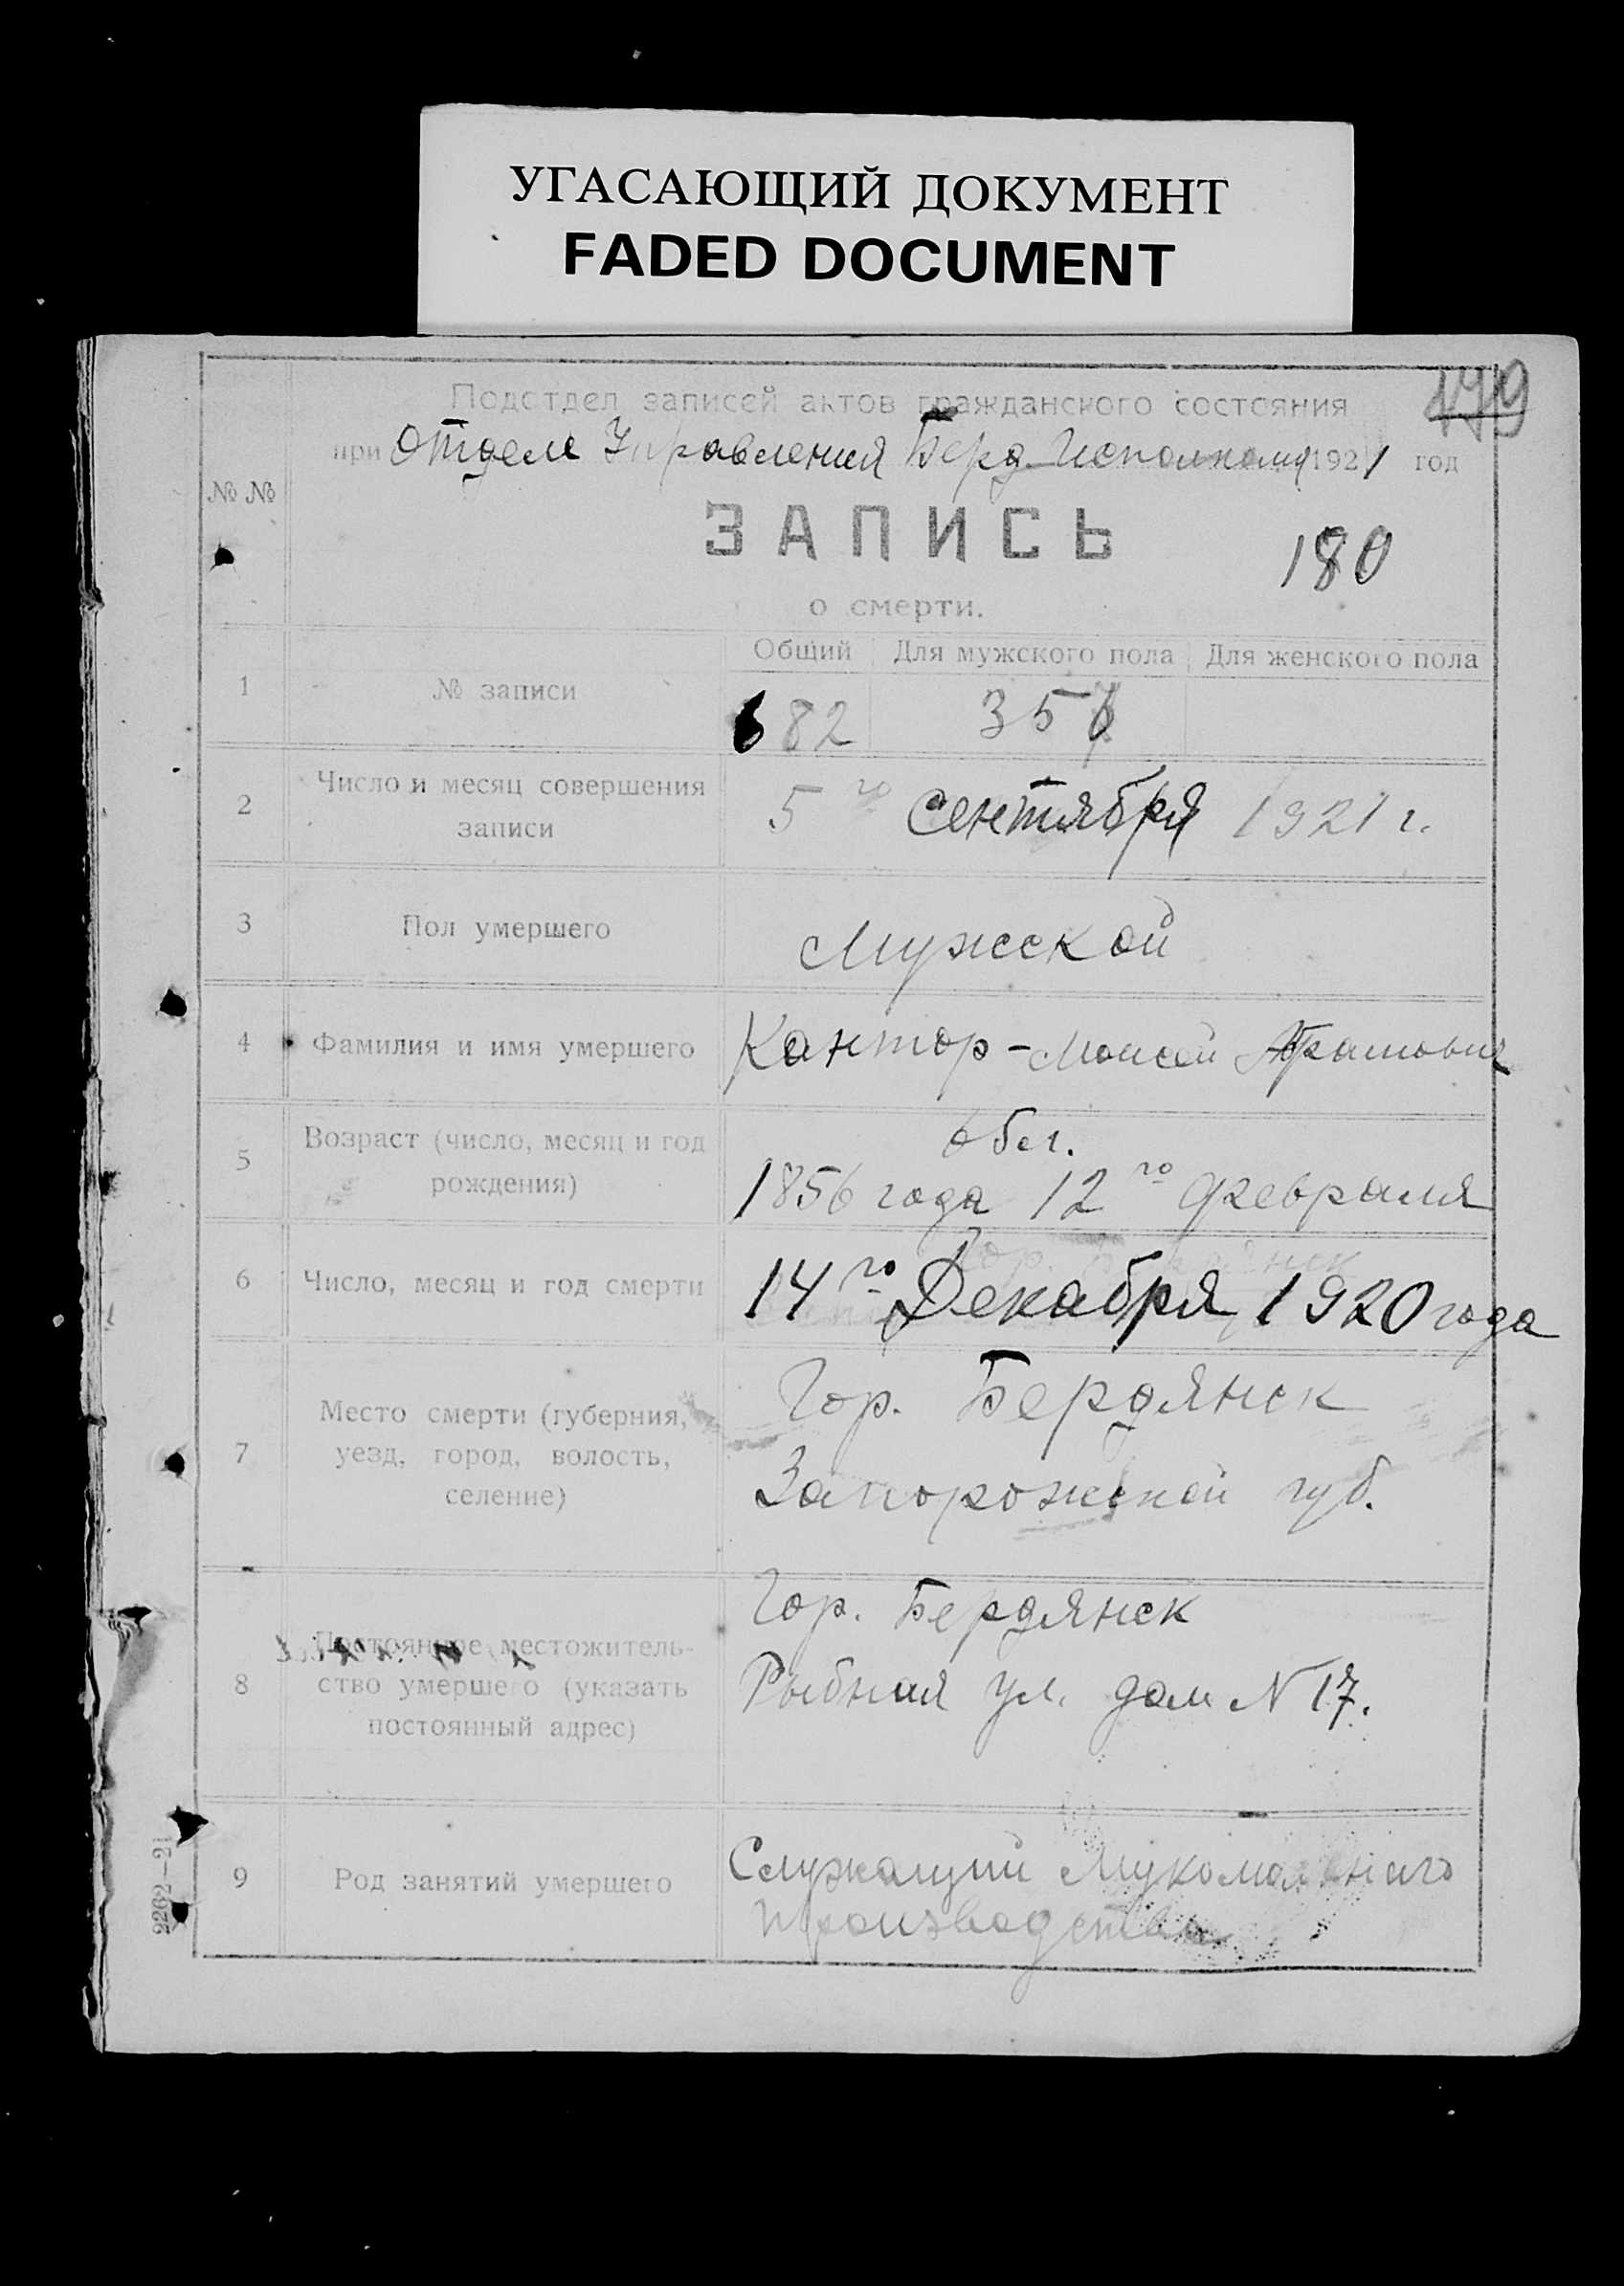 УГАСАЮЩИЙ ДОКУМЕНТ
FADED DOCUMENT
179
Подотдел записей актов гражданского состояния
при Отделе Управления Берд. Исполкома 1921 год
№ №
ЗАПИСЬ
180
о смерти.
Общий Для мужского пола Для женского пола
1 № записи 682 357
2 Число и месяц совершения
записи
5го Сентября 1921 г.
3 Пол умершего Мужской
4 Фамилия и имя умершего Кантор - Моисей Абрамович
5 Возраст (число, месяц и год
рождения)
1856 года 12го февраля
6 Число, месяц и год смерти 14го Декабря 1920 года
7 Место смерти (губерния,
уезд, город, волость,
селение)
Гор. Бердянск
Запорожской губ.
8 Постоянное местожитель-
ство умершего (указать
постоянный адрес)
Гор. Бердянск
Рыбная ул. дом N 17.
9 Род занятий умершего
Служащий Мукомольного
производства
2262–21